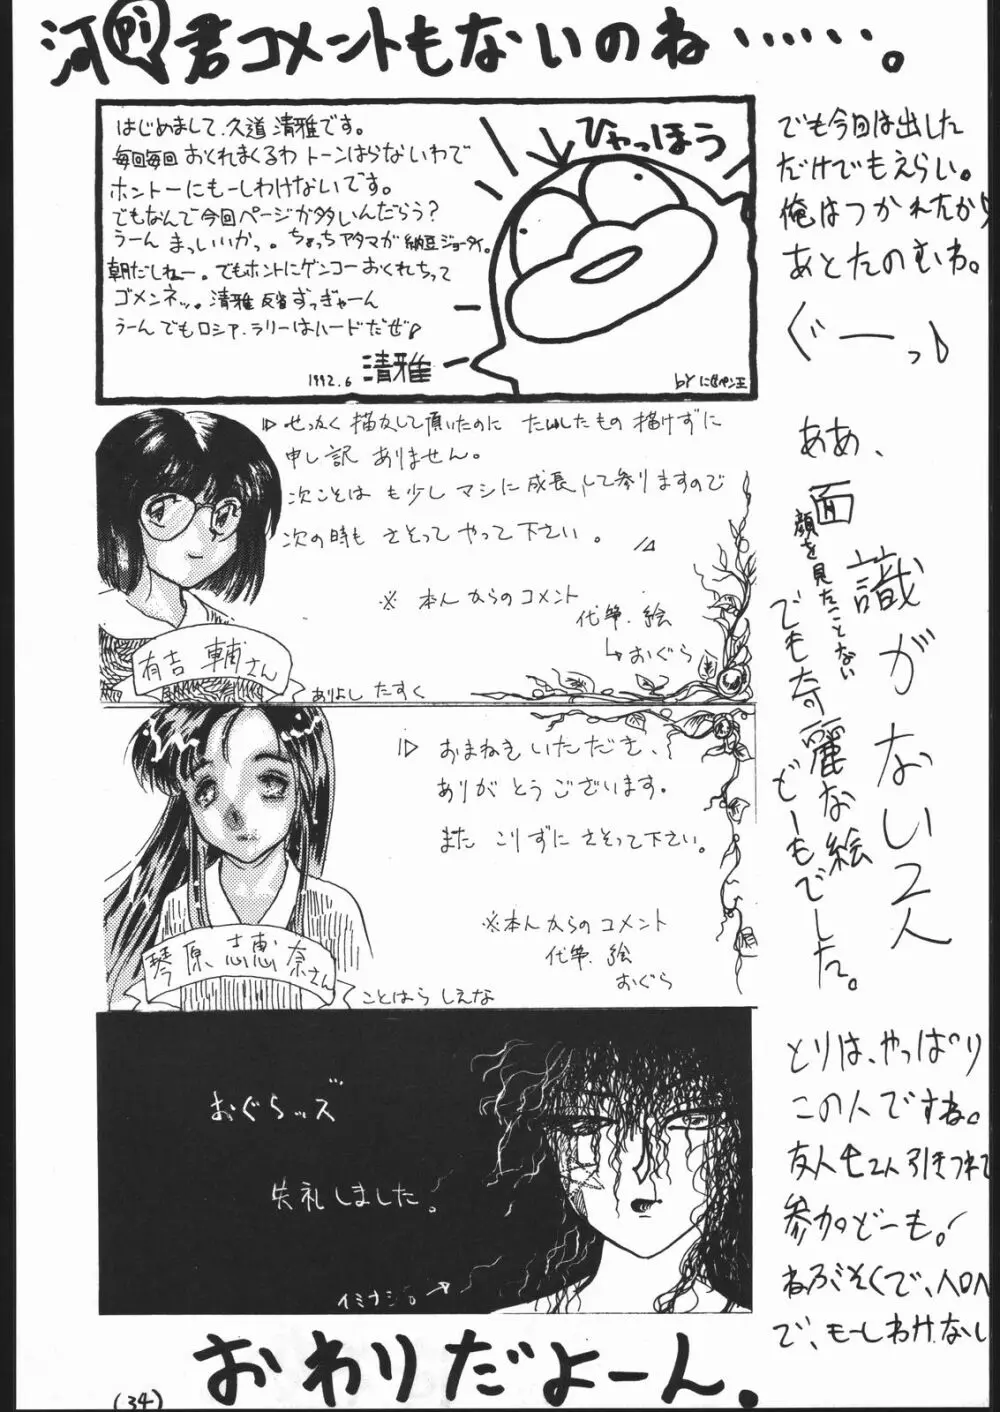 河Pi君コメントもないのね……。
はじめまして、久道 清雅です。
毎回毎回 おくれまくるわ トーンはらないわで
ホントーにもーしわけないです。
でもなんで今回ページが多いんだろう?
うーん まっいいかっ。ちょっちアタマが納豆ジョータイ。
朝だしねー。でもホントにゲンコーおくれちって
ゴメンネッ。清雅 反省 ずっぎゃーん
うーん でもロシア、ラリーはハードだぜ♪
1992.6 清雅
ひゃっほう
by にせペン王
でも今回は出した
だけでもえらい。
俺はつかれたから
あとたのむね。
ぐーっ♪
▷せっかく 描かして頂いたのに たいしたもの 描けずに
申し訳 ありません。
次ことは も少し マシに 成長して参りますので
次の時も さそって やって下さい。
※ 本人からのコメント
代筆、絵
↳おぐら
有吉 輔さん
ありよし たすく
▷ おまねき いただき、
ありがとうございます。
また こりずに さそって下さい。
※本人からの コメント
代筆、絵
おぐら
琴原 志恵奈さん
ことはら しえな
ああ、
面識がない2人
顔を見たことない
でも奇麗な絵
どーもでした。
おぐらッズ
失礼しました。
イミナシ。→
とりは、やっぱり
この人ですね。
友人も2人引きつれて
参加どーも。
ねぶそくで、
で、もーしわけなし
おわりだよーん。
(34)